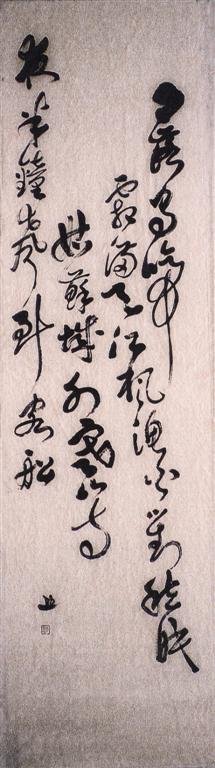 月落烏啼
霜滿天江楓漁火對愁眠
姑蘇城外寒山寺
夜半鐘聲到客船